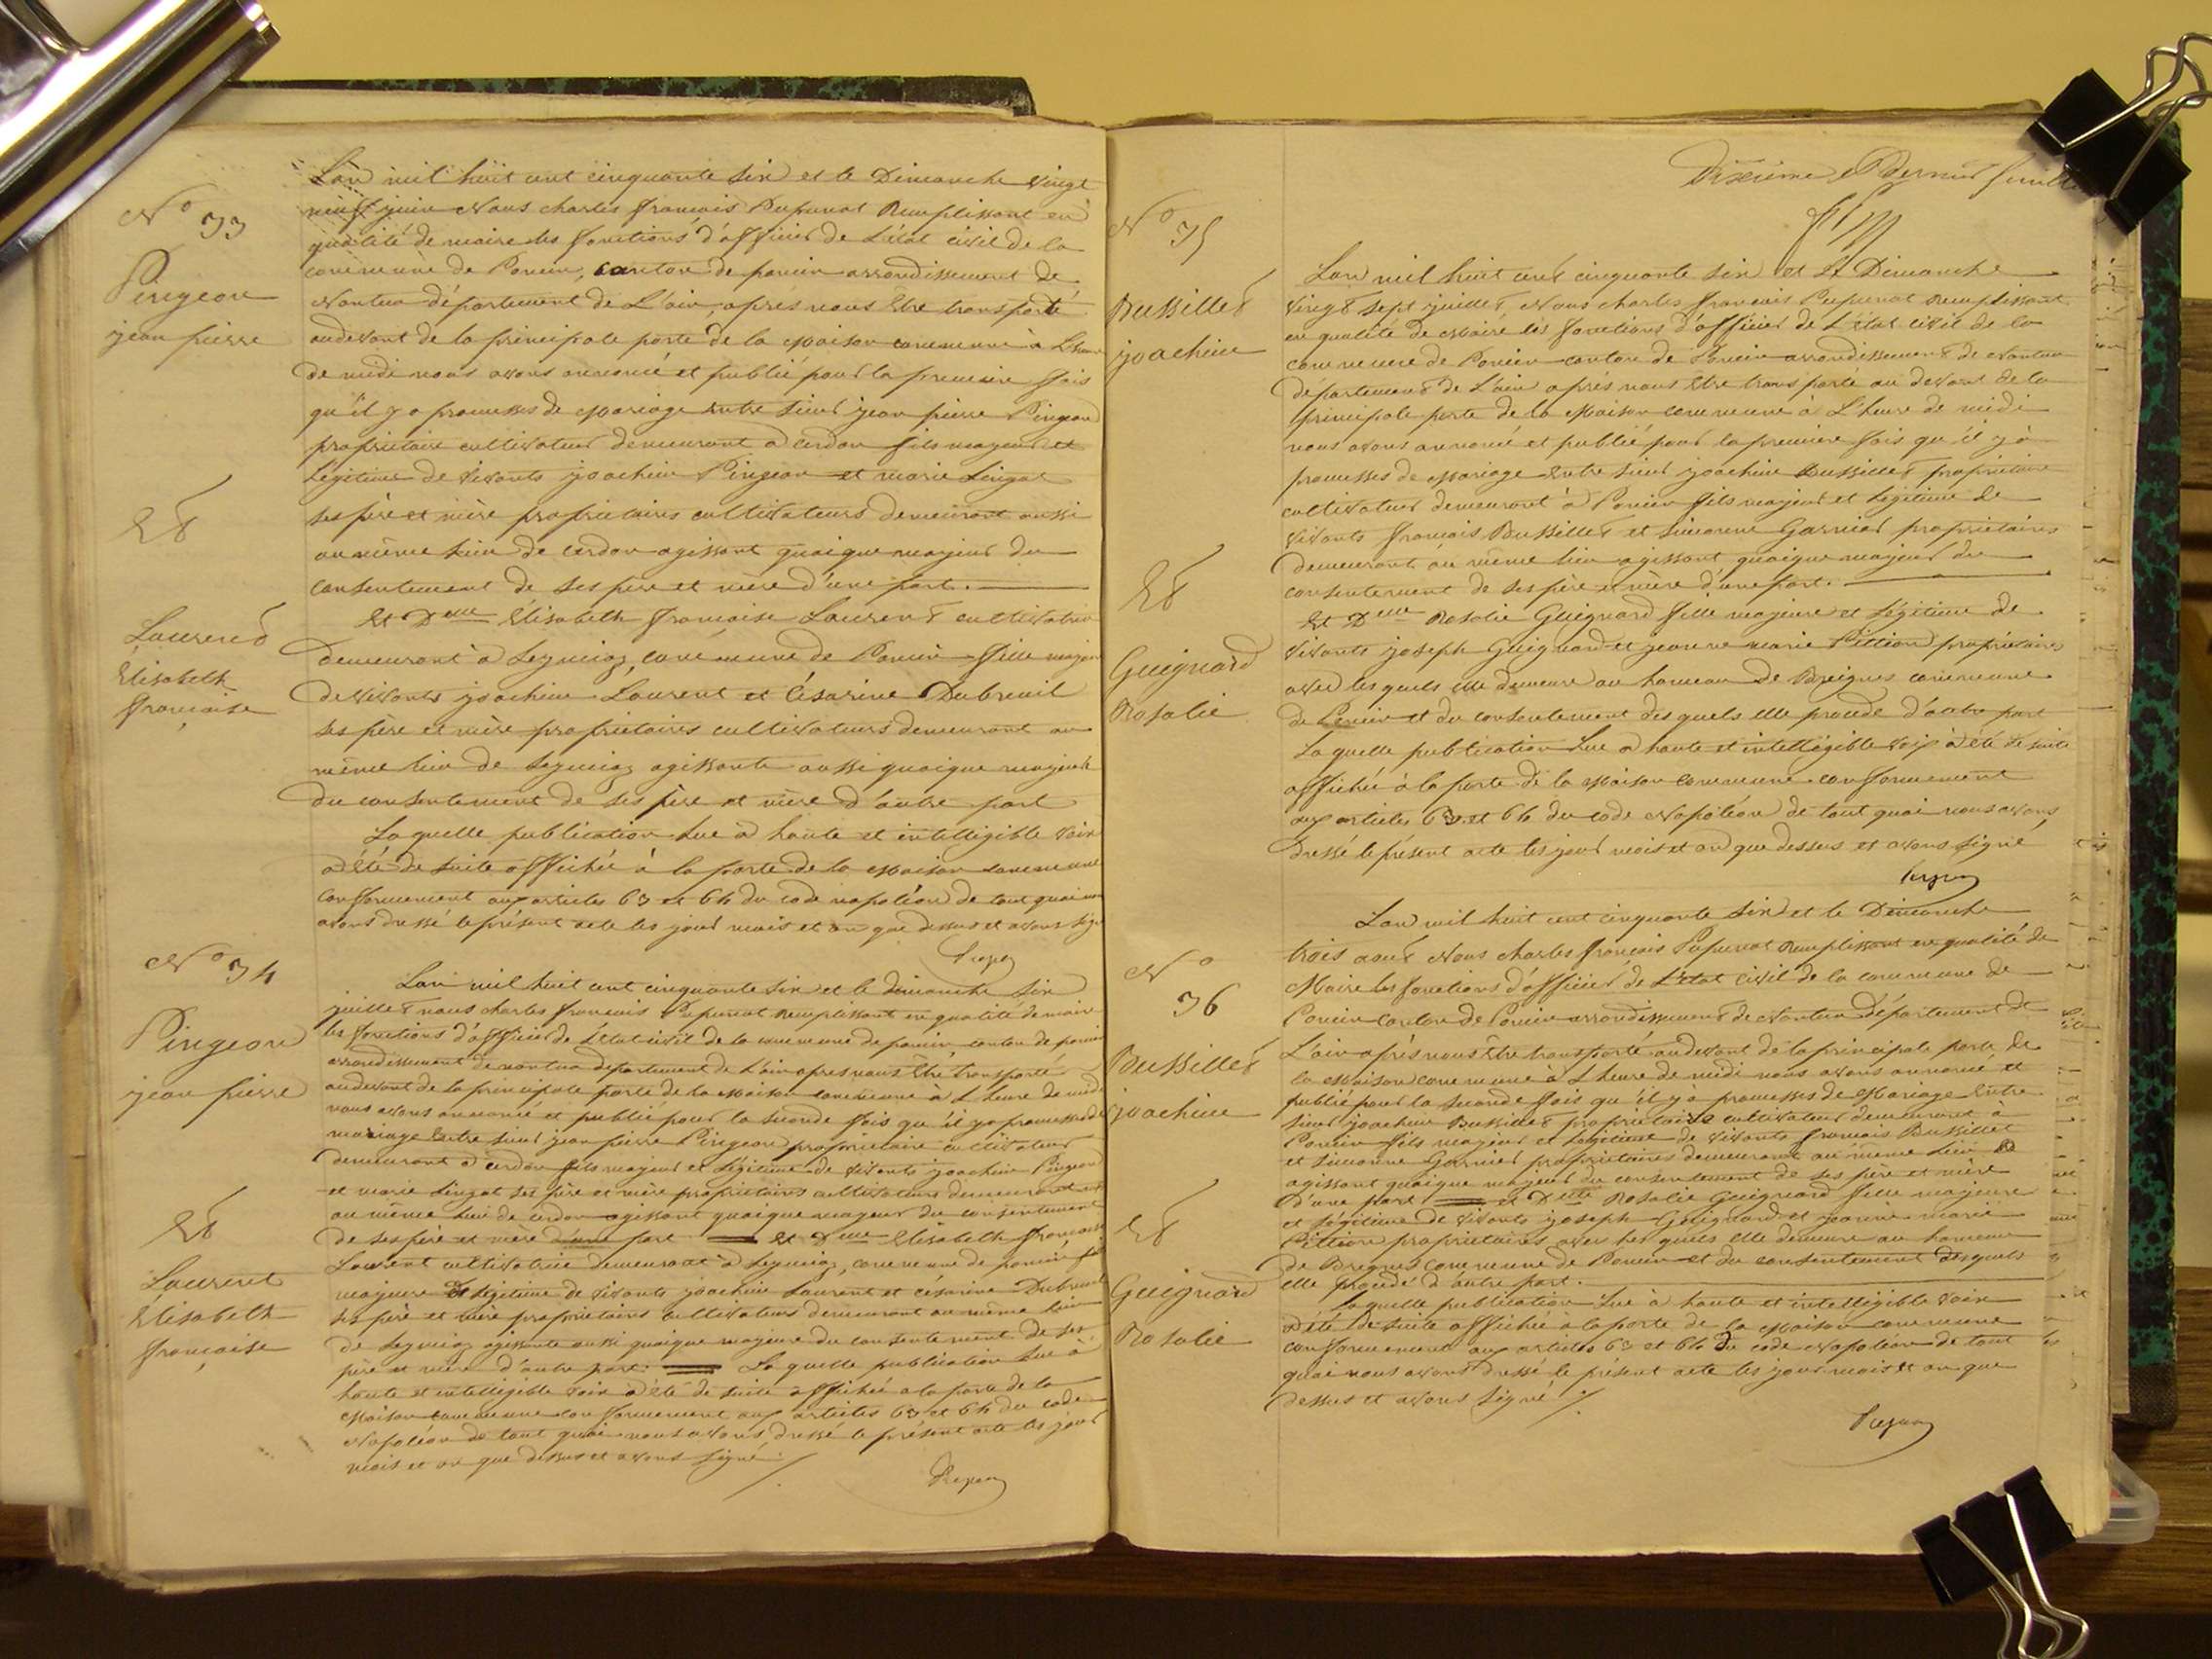 N° 33
Pingeon
jean pierre
Et
Laurent
Elisabeth
françoise
L'an mil huit cent cinquante six et le Dimanche vingt
neuf juin Nous charles françois Pupunat Remplissant en
qualité de maire les fonctions d'officier de L'état civil de la
commune de Poncin, canton de poncin arrondissement de
Nantua département de L'ain, après nous être transporté
audevant de la principale porte de la Maison commune à L'heure
de midi nous avons annoncé et publié pour la première fois
qu'il y a promesses de Mariage Entre sieur jean pierre Pingeon
propriétaire cultivateur demeurant à cerdon fils majeur et
Légitime de vivants joachim Pingeon et marie
ses père et mère propriétaires cultivateurs demeurant aussi
au même lieu de cerdon agissant quoique majeur du
consentement de ses père et mère d'une part.
Et Delle Elisabeth françoise Laurent cultivatrice
demeurant à Leymiaz, commune de Poncin fille majeure
de vivants joachim Laurent et Césarine Dubreuil
ses père et mère propriétaires cultivateurs demeurant au
même lieu de Leymiaz agissante aussi quoique majeure
du consentement de ses père et mère d'autre part
Laquelle publication Lue à haute et intelligible voix
a été de suite affichée à la porte de la Maison commune
conformement aux articles 63 et 64 du code napoléon de tout quoi nous
avons dressé le présent acte les jour mois et an que dessus et avons signé
N° 34
Pingeon
jean pierre
Et
Laurent
Elisabeth
françoise
L'an mil huit cent cinquante six et le dimanche six
juillet nous charles françois Pupunat Remplissant en qualité de maire
les fonctions d'officier de L'état civil de la commune de poncin canton de poncin
arrondissement de nantua département de L'ain après nous être transporté
audevant de la principale porte de la Maison commune à L'heure de midi
nous avons annoncé et publié pour la seconde fois qu'il y a promesses de
mariage Entre sieur jean pierre Pingeon propriétaire cultivateur
demeurant à cerdon fils majeur et Légitime de vivants joachim Pingeon
et marie ses père et mère propriétaires cultivateurs demeurant
au même lieu de cerdon agissant quoique majeur du consentement
de ses père et mère d'une part. Et Delle Elisabeth françoise
Laurent cultivatrice demeurant à Leymiaz, commune de poncin fille
majeure et Légitime de vivants joachim Laurent et césarine Dubreuil
ses père et mère propriétaires cultivateurs demeurant au même lieu
de Leymiaz agissante aussi quoique majeure du consentement de ses
père et mère d'autre part. Laquelle publication Lue à
haute et intelligible voix a été de suite affichée à la porte de la
Maison commune conformement aux articles 63 et 64 du code
Napoléon de tout quoi nous avons dressé le présent acte les jour
mois et an que dessus et avons signé
Dixième et Dernier feuillet
N° 35
Bussillet
joachim
Et
Guignard
Rosalie
L'an mil huit cent cinquante six et le Dimanche
vingt sept juillet Nous charles françois Pupunat remplissant
en qualité de Maire les fonctions d'officier de L'état civil de la
commune de Poncin canton de Poncin arrondissement de Nantua
département de L'ain après nous être transporté au devant de la
principale porte de la Maison commune à L'heure de midi
nous avons annoncé et publié pour la première fois qu'il y a
promesses de Mariage Entre sieur joachim Bussillet propriétaire
cultivateur demeurant à Poncin fils majeur et Légitime de
vivants françois Bussillet et simonne Garnier propriétaires
demeurant au même lieu agissant quoique majeur du
consentement de ses père et mère d'une part.
Et Delle Rosalie Guignard fille majeure et Légitime de
vivants joseph Guignard et jeanne marie Pittion propriétaires
avec lesquels elle demeure au hameau de Breignes commune
de Poncin et du consentement desquels elle procède d'autre part
Laquelle publication Lue à haute et intelligible voix a été de suite
affichée à la porte de la Maison commune conformement
aux articles 63 et 64 du code Napoléon de tout quoi nous avons
dressé le présent acte les jour mois et an que dessus et avons signé
N° 36
Bussillet
joachim
Et
Guignard
Rosalie
L'an mil huit cent cinquante six et le Dimanche
trois août Nous charles françois Pupunat Remplissant en qualité de
Maire les fonctions d'officier de L'état civil de la commune de
Poncin canton de Poncin arrondissement de Nantua Département de
L'ain après nous être transporté audevant de la principale porte de
la Maison commune à L'heure de midi nous avons annoncé et
publié pour la seconde fois qu'il y a promesses de Mariage Entre
sieur joachim Bussillet propriétaire cultivateur demeurant à
Poncin fils majeur et Légitime de vivants françois Bussillet
et simonne Garnier propriétaires demeurant au même lieu
agissant quoique majeur du consentement de ses père et mère
d'une part et Delle Rosalie Guignard fille majeure
et Légitime de vivants joseph Guignard et jeanne marie
Pittion propriétaires avec lesquels elle demeure au hameau
de Breignes commune de Poncin et du consentement desquels
elle procède d'autre part.
Laquelle publication Lue à haute et intelligible voix
a été de suite affichée à la porte de la Maison commune
conformement aux articles 63 et 64 du code Napoléon de tout
quoi nous avons dressé le présent acte les jour mois et an que
dessus et avons signé